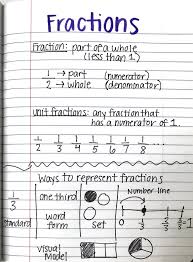 Fractions
Fraction: part of a whole
(less than 1.)
1 → part (numerator)
2 → whole (denominator)
unit fractions: any fraction that
has a numerator of 1.
1/2 1/3 1/4 1/5 1/6 1/7 1/8 ...
Ways to represent fractions
1/3
standard
one third
word
form
set
Number line
0 1/3 2/3 3/3=1
visual
Model